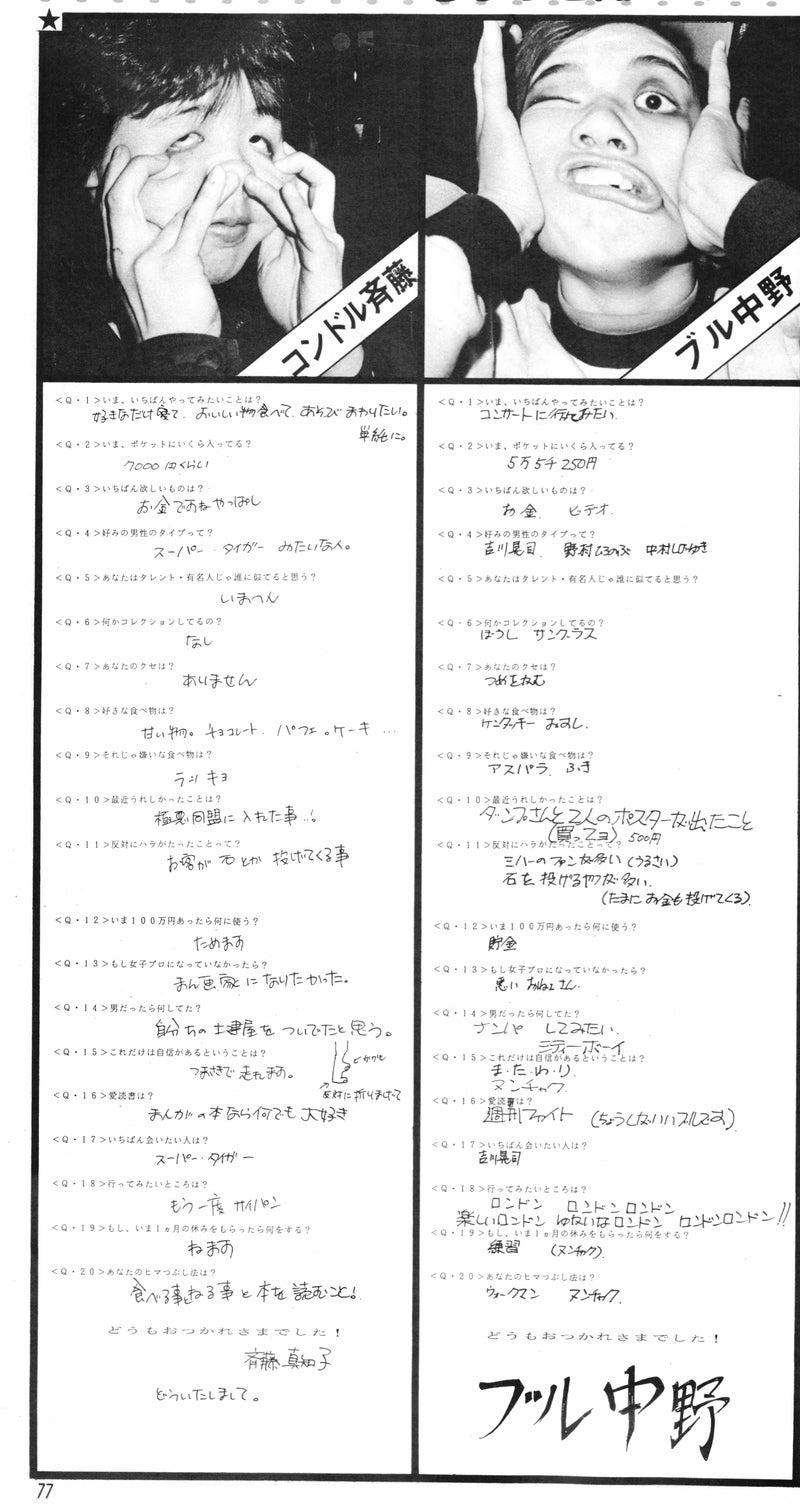 コンドル斉藤
<Q・1>いま、いちばんやってみたいことは?
好きなだけ寝て、おいしい物食べて、あそびまわりたい。
単純に。
<Q・2>いま、ポケットにいくら入ってる?
7000円くらい
<Q・3>いちばん欲しいものは?
お金ですねやっぱし
<Q・4>好みの男性のタイプって?
スーパー・タイガー みたいな人。
<Q・5>あなたはタレント・有名人じゃ誰に似てると思う?
いまつん
<Q・6>何かコレクションしてるの?
なし
<Q・7>あなたのクセは?
ありません
<Q・8>好きな食べ物は?
甘い物。チョコレート、パフェ。ケーキ…
<Q・9>それじゃ嫌いな食べ物は?
ラッキョ
<Q・10>最近うれしかったことは?
極悪同盟に入れた事…!
<Q・11>反対にハラがたったことって?
お客が石とか投げてくる事
<Q・12>いま100万円あったら何に使う?
ためます
<Q・13>もし女子プロになっていなかったら?
まん画家になりたかった。
<Q・14>男だったら何してた?
自分ちの土建屋をついでたと思う。
<Q・15>これだけは自信があるということは?
つまさきで走れます。
かかと
反対に折りまげて
<Q・16>愛読書は?
まんがの本なら何でも大好き
<Q・17>いちばん会いたい人は?
スーパー・タイガー
<Q・18>行ってみたいところは?
もう一度 サイパン
<Q・19>もし、いま1ヵ月の休みをもらったら何をする?
ねます
<Q・20>あなたのヒマつぶし法は?
食べる事とねる事と本を読むこと!
どうもおつかれさまでした!
斉藤真知子
どういたしまして。
ブル中野
<Q・1>いま、いちばんやってみたいことは?
コンサートに行ってみたい
<Q・2>いま、ポケットにいくら入ってる?
5万5千250円
<Q・3>いちばん欲しいものは?
お金 ビデオ
<Q・4>好みの男性のタイプって?
吉川晃司 野村ひろのぶ 中村しげゆき
<Q・5>あなたはタレント・有名人じゃ誰に似てると思う?
<Q・6>何かコレクションしてるの?
ぼうし サングラス
<Q・7>あなたのクセは?
つめをかむ
<Q・8>好きな食べ物は?
ケンタッキー おすし
<Q・9>それじゃ嫌いな食べ物は?
アスパラ ふき
<Q・10>最近うれしかったことは?
ダンプさんと2人のポスターが出たこと
(買ってヨ) 500円
<Q・11>反対にハラがたったことって?
ミハーのファンが多い(うるさい)
石を投げるヤツが多い
(たまにお金も投げてくる)
<Q・12>いま100万円あったら何に使う?
貯金
<Q・13>もし女子プロになっていなかったら?
悪いおねえさん
<Q・14>男だったら何してた?
ナンパ してみたい
シティーボーイ
<Q・15>これだけは自信があるということは?
ま・た・わ・り
ヌンチャク
<Q・16>愛読書は?
週刊ファイト
<Q・17>いちばん会いたい人は?
吉川晃司
<Q・18>行ってみたいところは?
ロンドン ロンドンロンドン
楽しいロンドン ゆかいなロンドン ロンドンロンドン!!
<Q・19>もし、いま1ヵ月の休みをもらったら何をする?
練習 (ヌンチャク)
<Q・20>あなたのヒマつぶし法は?
ウォークマン ヌンチャク
どうもおつかれさまでした!
ブル中野
77